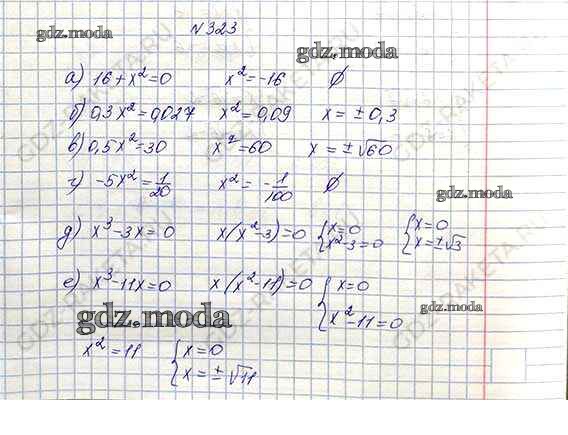 №323
gdz.moda
gdz.moda
а) 16+x²=0 x²=-16 ∅
б) 0,3x²=0,027 x²=0,09 x=±0,3
в) 0,5x²=30 x²=60 x=±√60
г) -5x²=1/20 x²=-1/100 ∅
gdz.moda
д) x³-3x=0 x(x²-3)=0 {x=0 x²-3=0 {x=0 x=±√3
е) x³-11x=0 x(x²-11)=0 {x=0 x²-11=0
gdz.moda
gdz.moda
x²=11 {x=0 x=±√11
GDZ-RAKETA.RU